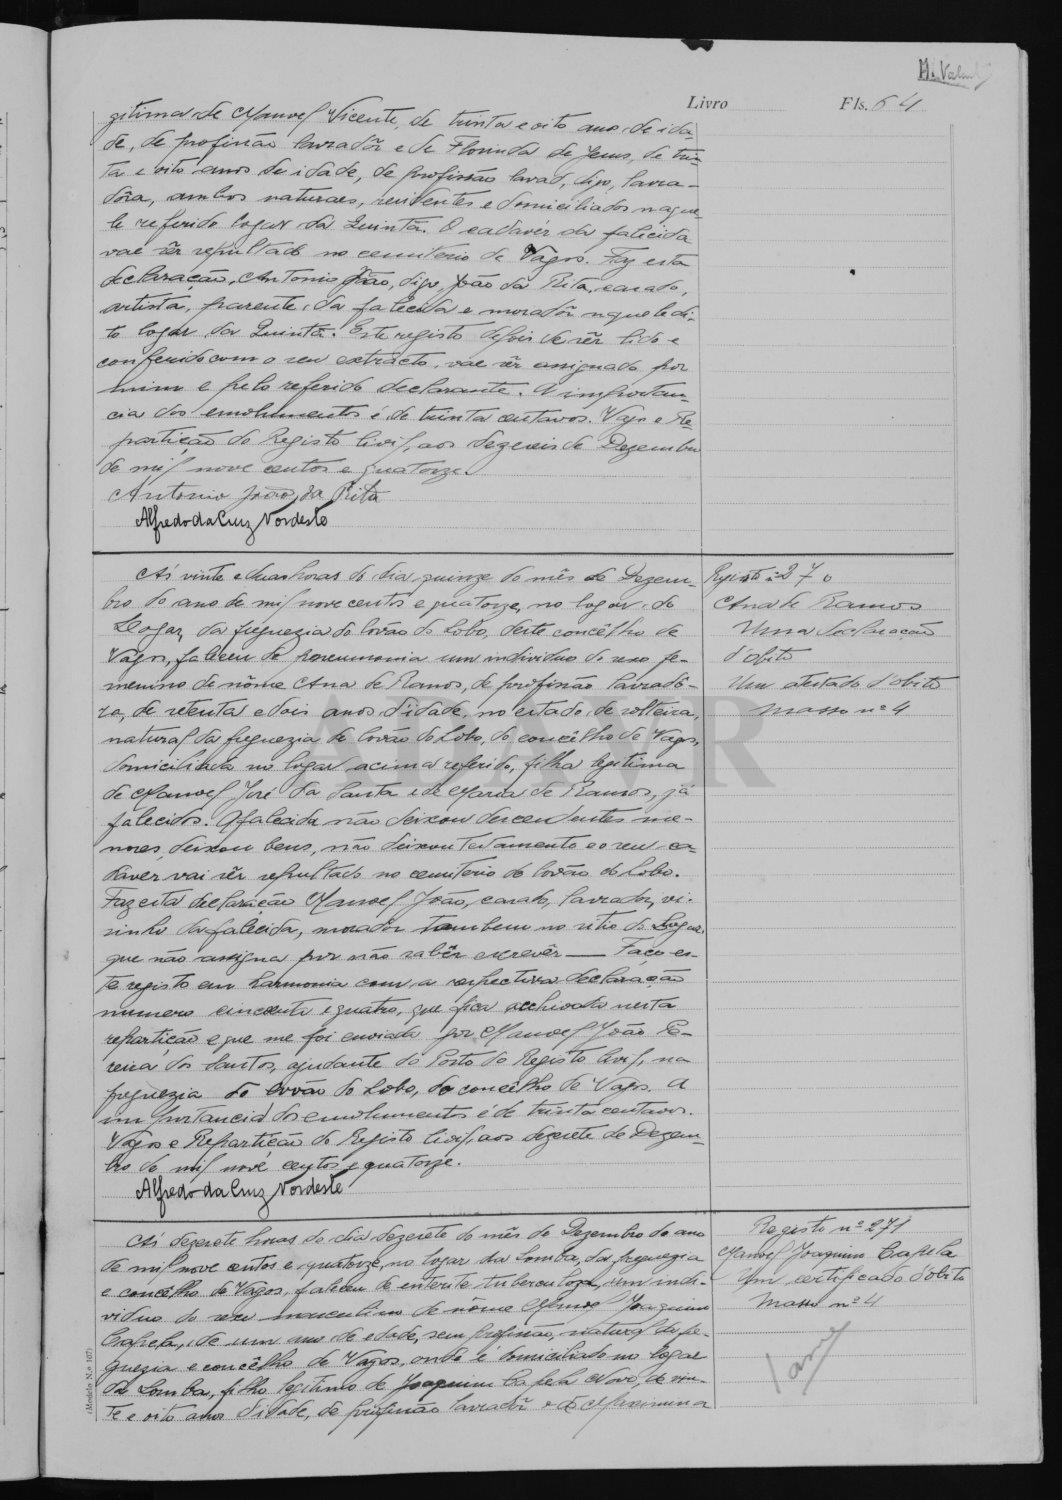 Livro Fls. 64
gitima de Manoel Vicente, de trinta e oito anos de ida-
de, de profissão lavradôr e de Florinda de Jesus, de trin-
ta e oito anos de idade, de profissão lavad, digo, lavra-
dôra, ambos naturaes, residentes e domiciliados naque-
le referido logar da Quintã. O cadavér da falicida
vae sêr sepultado no cemiterio de Vagos. Faz esta
declaração, Antonio João, digo, João da Rita, casado,
artista, parente da falecida e moradôr naquele di-
to logar da Quintã. Este registo depois de sêr lido e
conferido com o seu extracto, vae sêr assignado por
mim e pelo referido declarante. A importan-
cia dos emolumentos é de trinta centavos. Vagos e Re-
partição do Registo Civil, aos dezeseis de Dezembro
de mil nove centos e quatorze.
Antonio João da Rita
Alfredo da Cruz Nordeste
Ás vinte e duas horas do dia quinze do mês de Dezem-
bro do ano de mil nove centos e quatorze, no logar do
da freguezia de Covão do Lobo, deste concêlho de
Vagos, faleceu de pneumonia um individuo do sexo fe-
menino de nôme Ana de Ramos, de profissão lavradô-
ra, de setenta e dois anos d'idade, no estado de solteira,
natural da freguezia de Covão do Lobo, do concêlho de Vagos,
domiciliada no logar acima referido, filha legitima
de Manoel José da Santa e de Maria de Ramos, já
falecidos. A falecida não deixou descendentes me-
nores, deixou bens, não deixou testamento e o seu ca-
dáver vai sêr sepultado no cemiterio de Covão do Lobo.
Faz esta declaração Manoel João, casado, lavrador, vi-
sinho da falecida, morador tambem no sitio do
que não assigna por não sabêr escrevêr — Faço es-
te registo em harmonia com a respectiva declaração
numero cincoenta e quatro, que fica archivada nesta
repartição e que me foi enviada por Manoel João Pe-
reira dos Santos, ajudante do Posto do Registo Civil, na
freguezia do Covão do Lobo, do concêlho de Vagos. A
importancia dos emolumentos é de trinta centavos.
Vagos e Repartição do Registo Civil, aos dezesete de Dezem-
bro de mil nove centos e quatorze.
Alfredo da Cruz Nordeste
Registo nº 270
Ana de Ramos
Uma declaração
d'obito
Um atestado d'obito
Masso nº 4
Ás dezesete horas do dia dezesete do mês de Dezembro do ano
de mil nove centos e quatorze, no logar da Lomba, da freguezia
e concêlho de Vagos, faleceu de enterite tuberculoza, um indi-
viduo do sexo masculino de nôme Manoel Joaquim
Capela, de um ano de edade, sem profissão, natural da fre-
guezia e concêlho de Vagos, onde é domiciliado no logar
da Lomba, filho legitimo de Joaquim Capela Novo, de vin-
te e oito anos d'idade, de profissão lavradôr e de Maximina
Registo nº 271
Manoel Joaquim Capela
Um certificado d'obito
Masso nº 4
1 ano
(Modelo N.º 107)